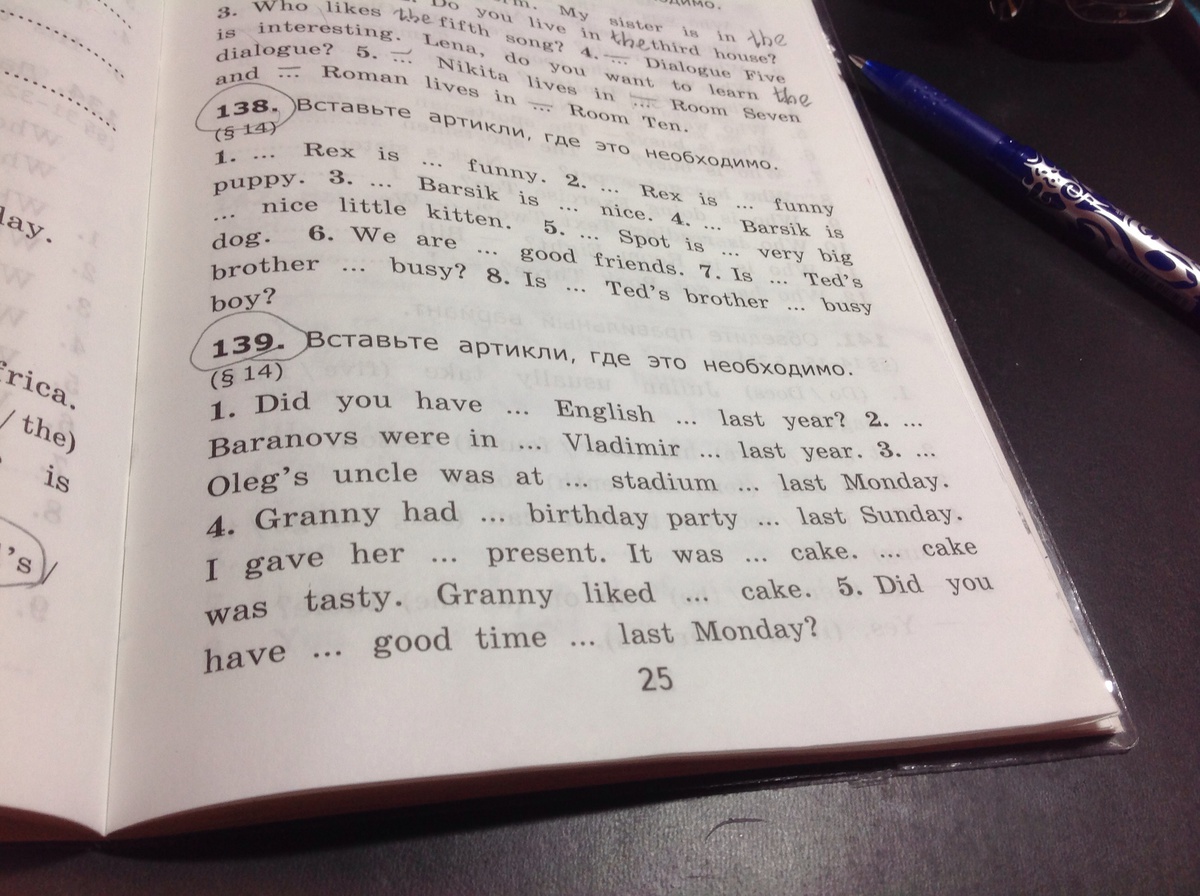 lay.
frica.
/ the)
is
's /
Do you live in the third house?
My sister is in the
3. Who likes the fifth song? 4. — Dialogue Five
is interesting. Lena, do you want to learn the
dialogue? 5. — Nikita lives in — Room Seven
and — Roman lives in — Room Ten.
138. Вставьте артикли, где это необходимо.
(§ 14)
1. ... Rex is ... funny. 2. ... Rex is ... funny
puppy. 3. ... Barsik is ... nice. 4. ... Barsik is
... nice little kitten. 5. ... Spot is ... very big
dog. 6. We are ... good friends. 7. Is ... Ted's
brother ... busy? 8. Is ... Ted's brother ... busy
boy?
139. Вставьте артикли, где это необходимо.
(§ 14)
1. Did you have ... English ... last year? 2. ...
Baranovs were in ... Vladimir ... last year. 3. ...
Oleg's uncle was at ... stadium ... last Monday.
4. Granny had ... birthday party ... last Sunday.
I gave her ... present. It was ... cake. ... cake
was tasty. Granny liked ... cake. 5. Did you
have ... good time ... last Monday?
25